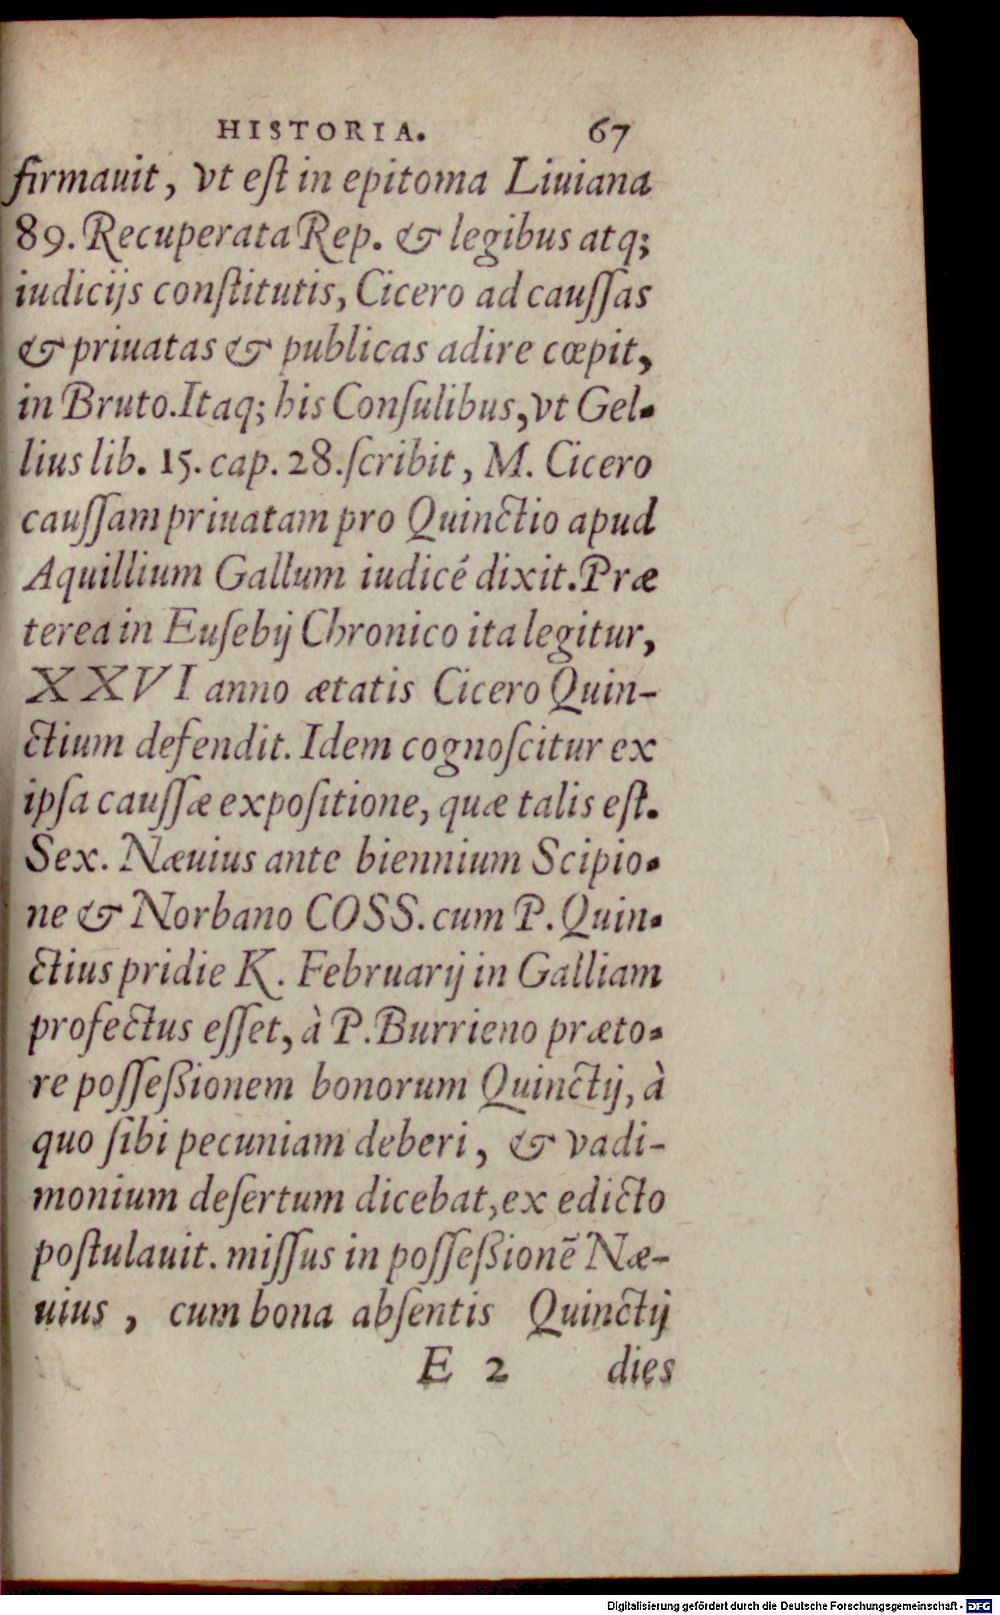 HISTORIA. 67
firmauit, vt eſt in epitoma Liuiana
89. Recuperata Rep. & legibus atq;
iudicijs conſtitutis, Cicero ad cauſſas
& priuatas & publicas adire cœpit,
in Bruto. Itaq; his Conſulibus, vt Gel-
lius lib. 15. cap. 28. ſcribit, M. Cicero
cauſſam priuatam pro Quinctio apud
Aquillium Gallum iudicé dixit. Præ
terea in Euſebij Chronico ita legitur,
XXVI anno ætatis Cicero Quin-
ctium defendit. Idem cognoſcitur ex
ipſa cauſſæ expoſitione, quæ talis eſt.
Sex. Næuius ante biennium Scipio-
ne & Norbano COSS. cum P. Quin-
ctius pridie K. Februarij in Galliam
profectus eſſet, à P. Burrieno præto-
re poſſeßionem bonorum Quinctij, à
quo ſibi pecuniam deberi, & vadi-
monium deſertum dicebat, ex edicto
poſtulauit. miſſus in poſſeßionē Næ-
uius, cum bona abſentis Quinctij
E 2 dies
Digitalisierung gefördert durch die Deutsche Forschungsgemeinschaft - DFG